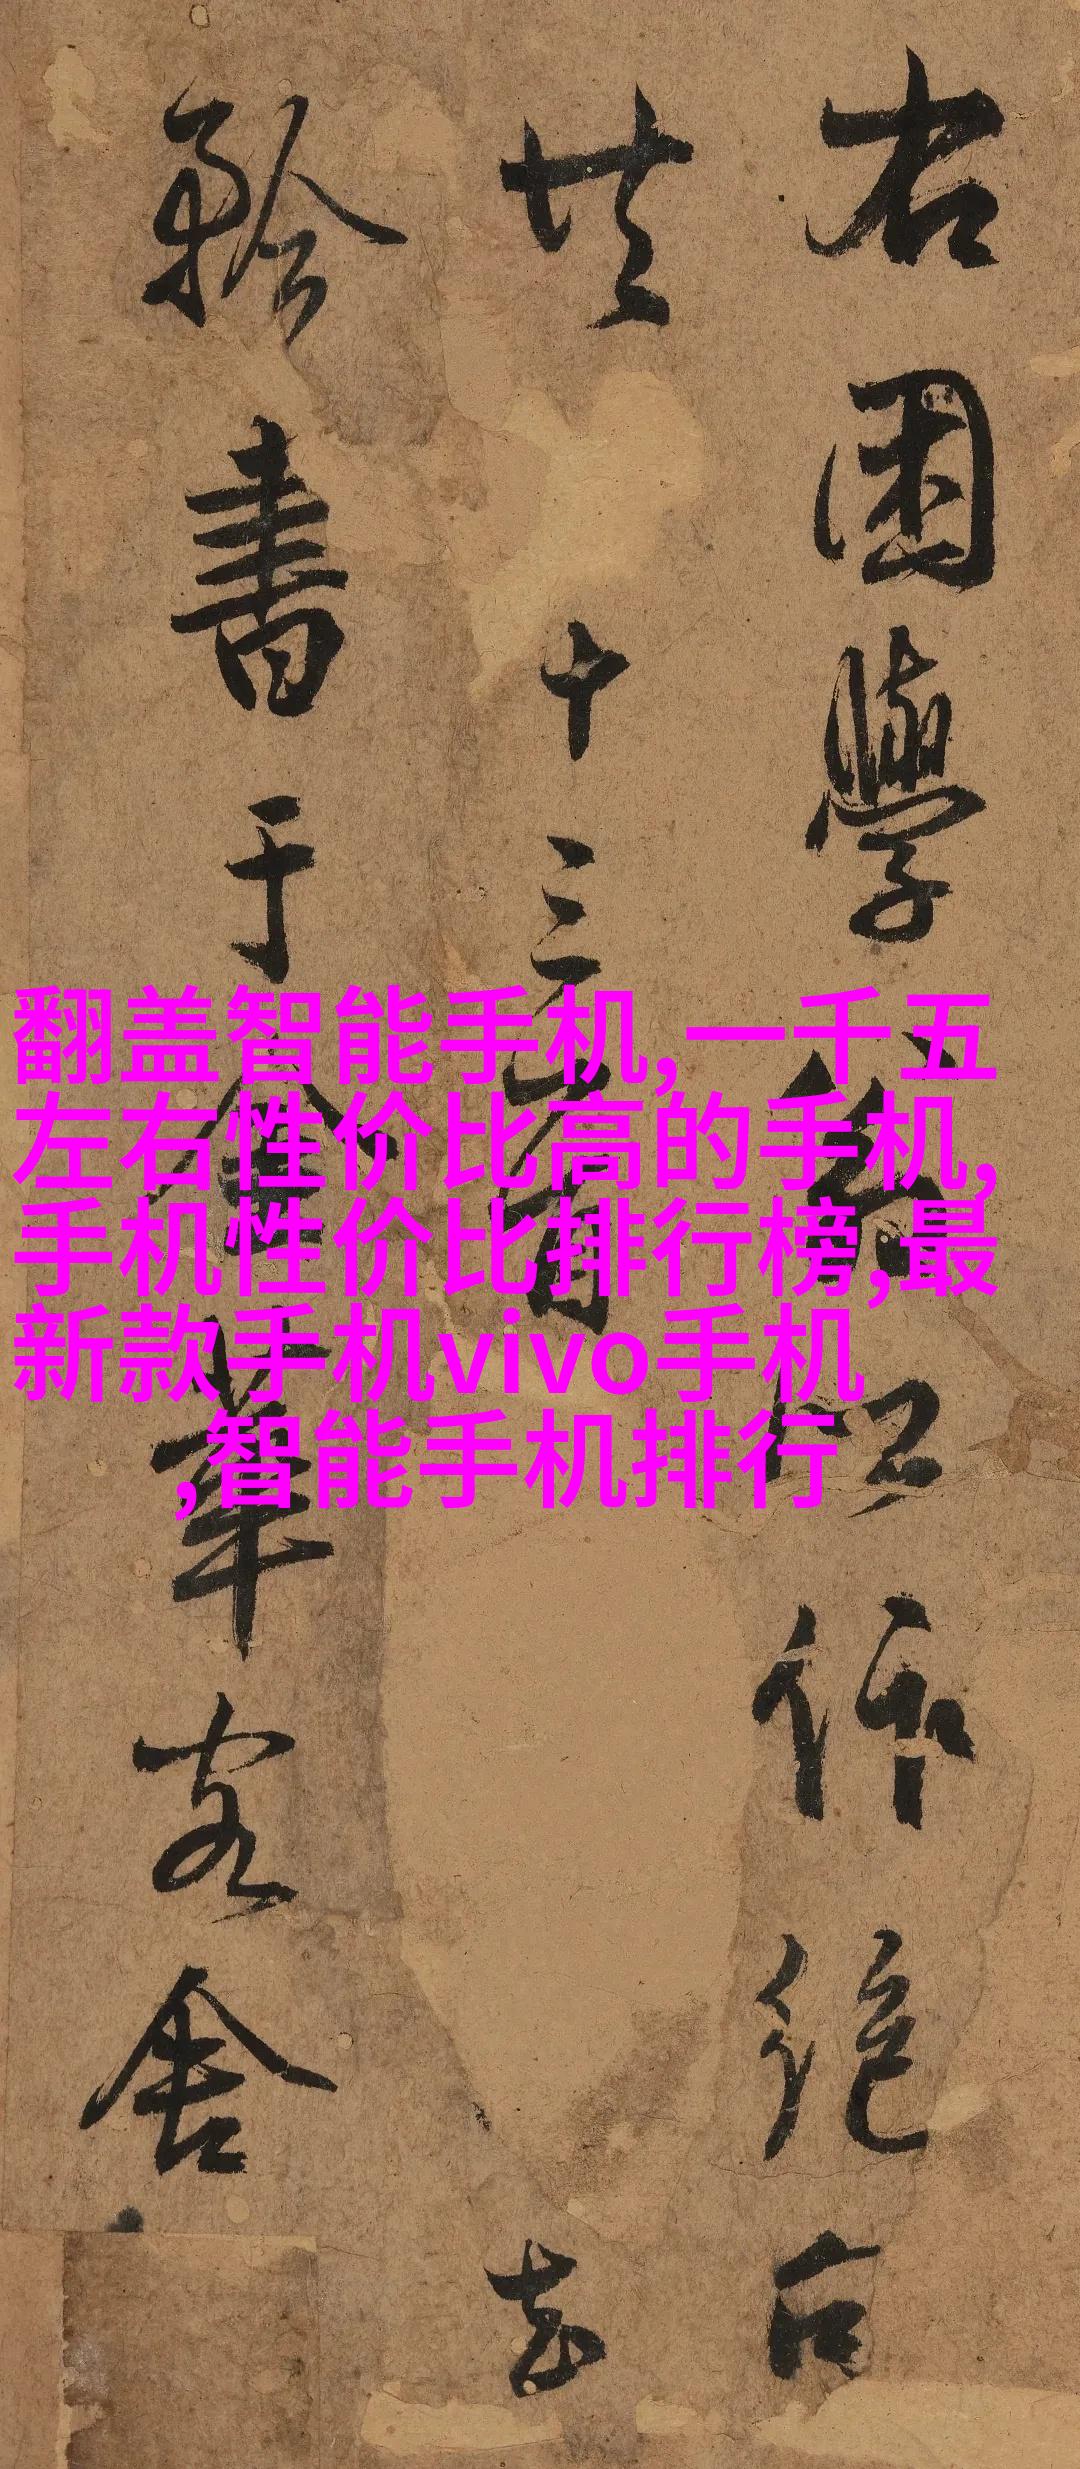 右困學作絕句
共十三首
書于金華客舍
翻盖智能手机,一千五
左右性价比高的手机,
手机性价比排行榜,最
新款手机vivo手机
,智能手机排行